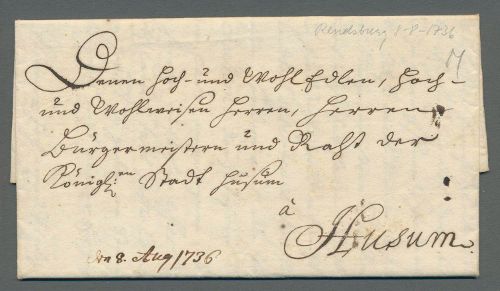 Rendsburg 1-8-1736
Denen Hoch- und WohlEdlen, Hoch-
und Wohlweisen Herren, Herren
Bürgermeistern und Raht der
Königl:en Stadt Husum
à
Husum.
den 8. Aug 1736